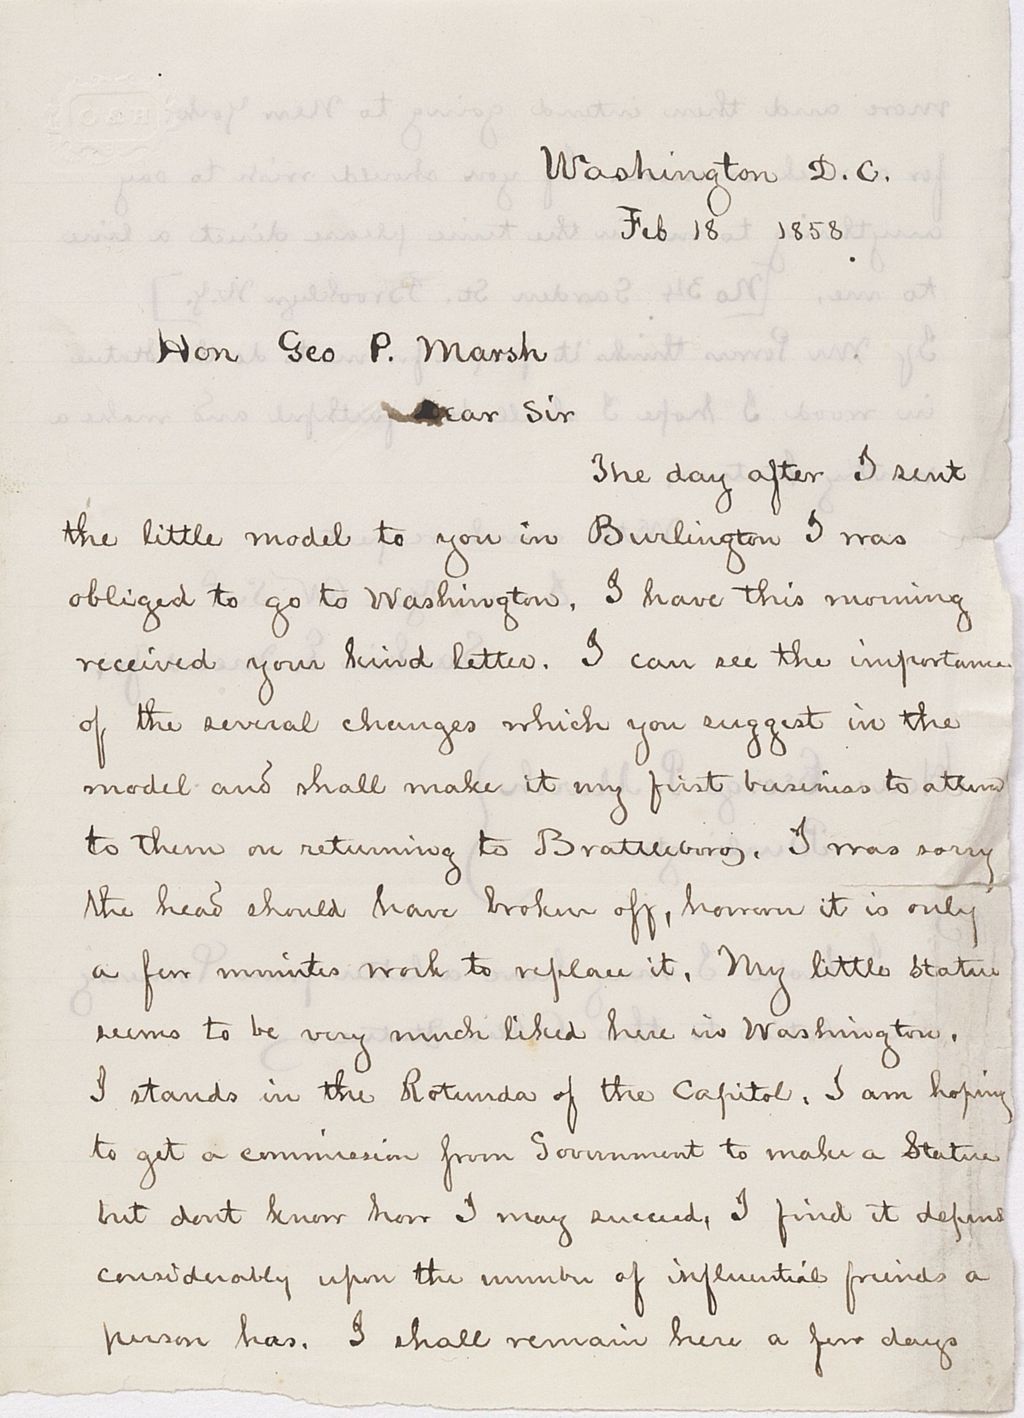 Washington D.C.
Feb 18 1858.
Hon Geo P. Marsh
Dear Sir
The day after I sent
the little model to you in Burlington I was
obliged to go to Washington. I have this morning
received your kind letter. I can see the importance
of the several changes which you suggest in the
model and shall make it my first business to attend
to them on returning to Brattleboro. I was sorry
the head should have broken off, however it is only
a few minutes work to replace it. My little statue
seems to be very much liked here in Washington.
I stands in the Rotunda of the Capitol. I am hoping
to get a commission from Government to make a Statue
but dont know how I may succeed, I find it depends
considerably upon the number of influential friends a
person has. I shall remain here a few days